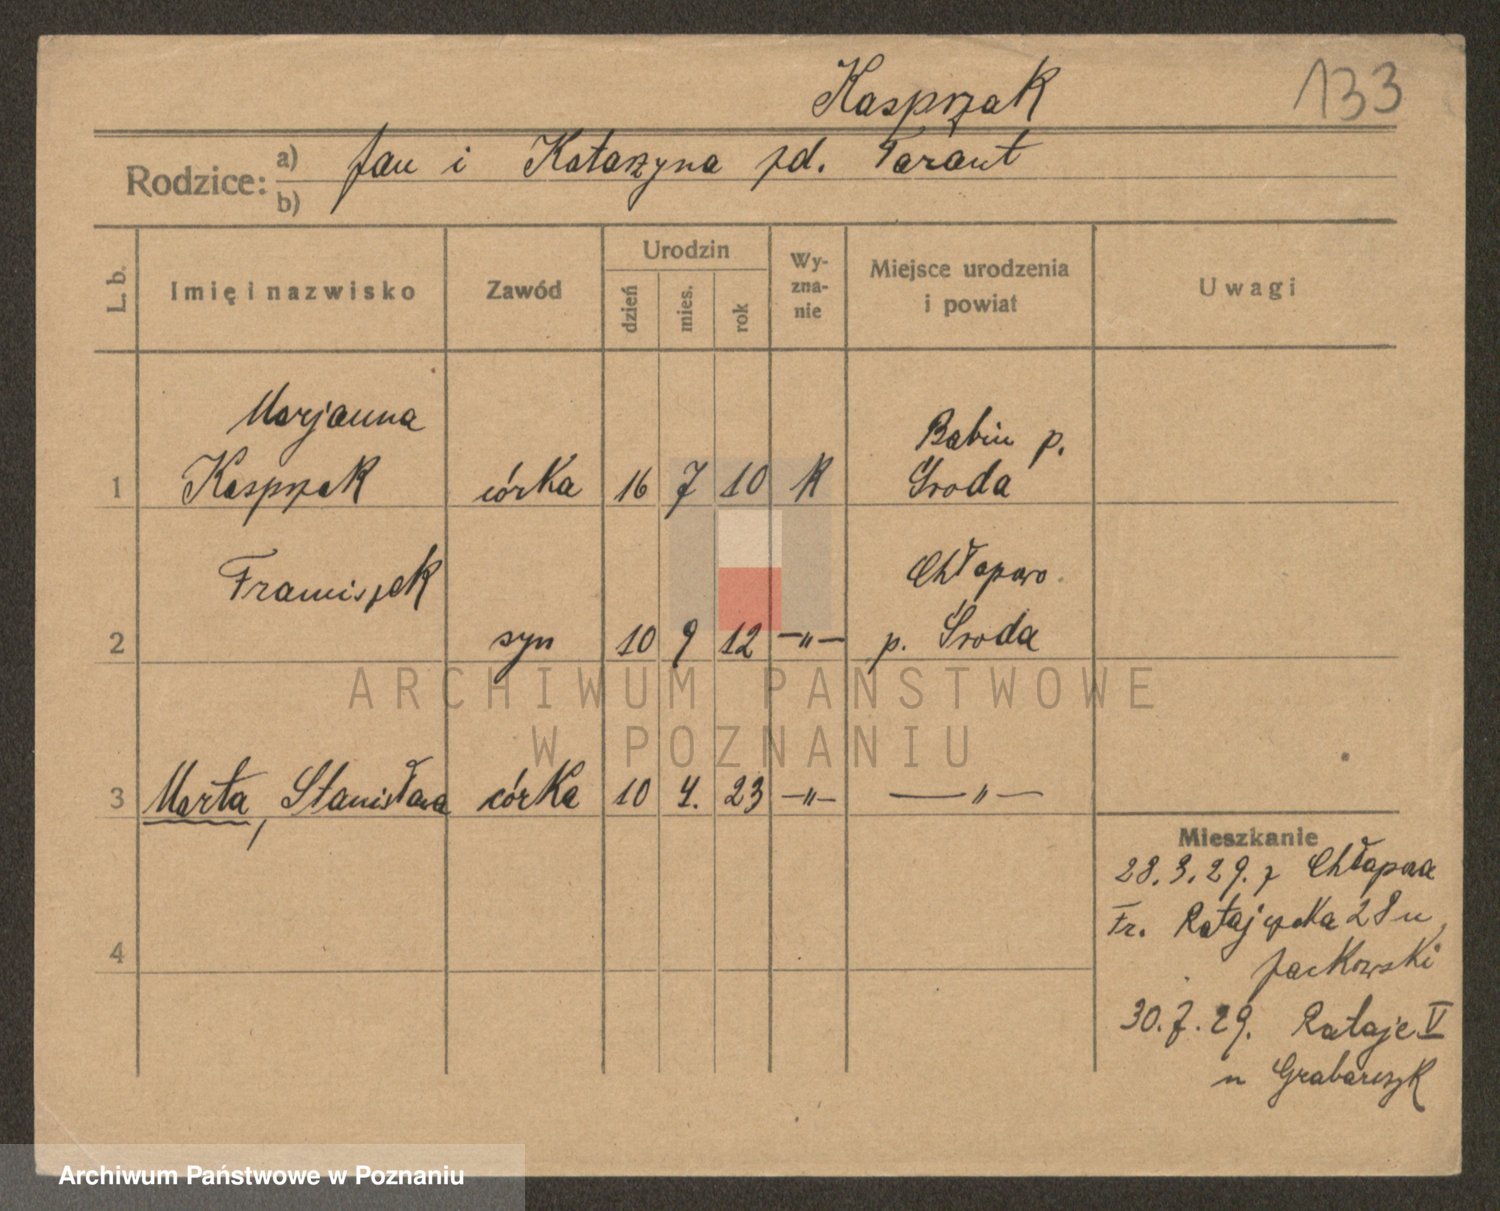 Kasprzak 133
Rodzice: a) Jan i Katarzyna zd. Tarant
b)
L. b. Imię i nazwisko Zawód Urodzin dzień mies. rok Wy-zna-nie Miejsce urodzenia i powiat Uwagi
Marjanna
Babin p.
1 Kasprzak córka 16 7 10 k Środa
Franciszek
Chłapowo
2 syn 10 9 12 —„— p. Środa
3 Marta, Stanisława córka 10 4. 23 —„— —„—
4
Mieszkanie
28.3.29. z Chłapowa
Fr. Ratajczaka 28 u
Jackowski
30.7.29. Rataje V
u Grabarczyk
ARCHIWUM PAŃSTWOWE
W POZNANIU
Archiwum Państwowe w Poznaniu